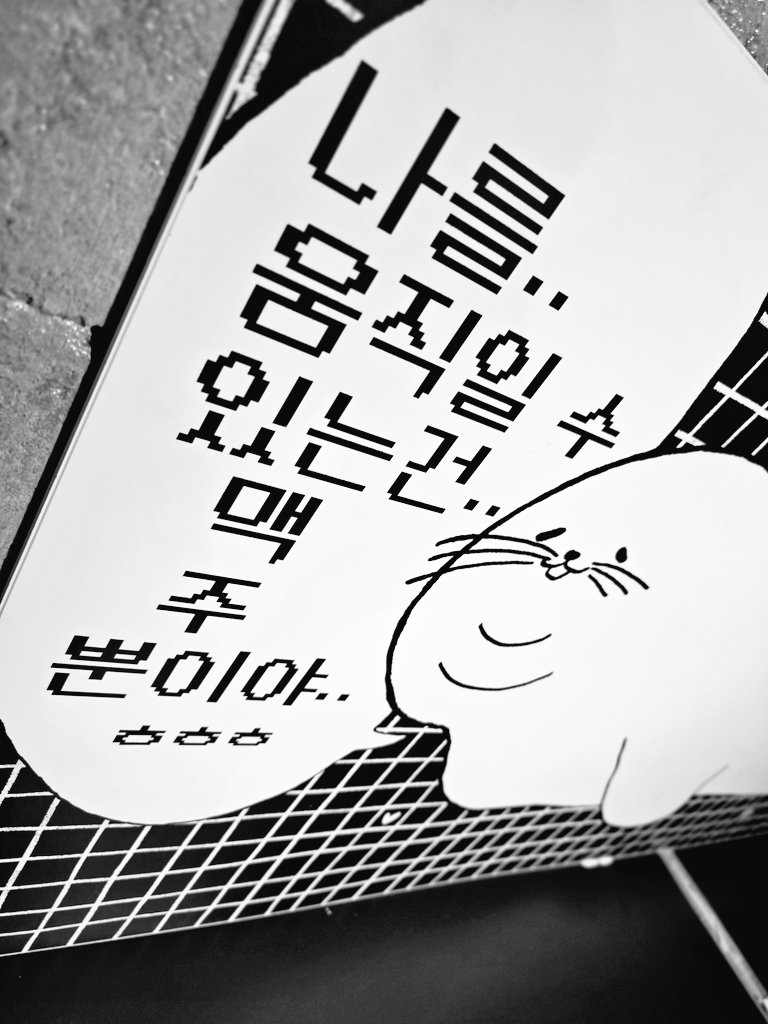 나를..
움직일 수
있는건..
맥
주
뿐이야..
ㅎㅎㅎ